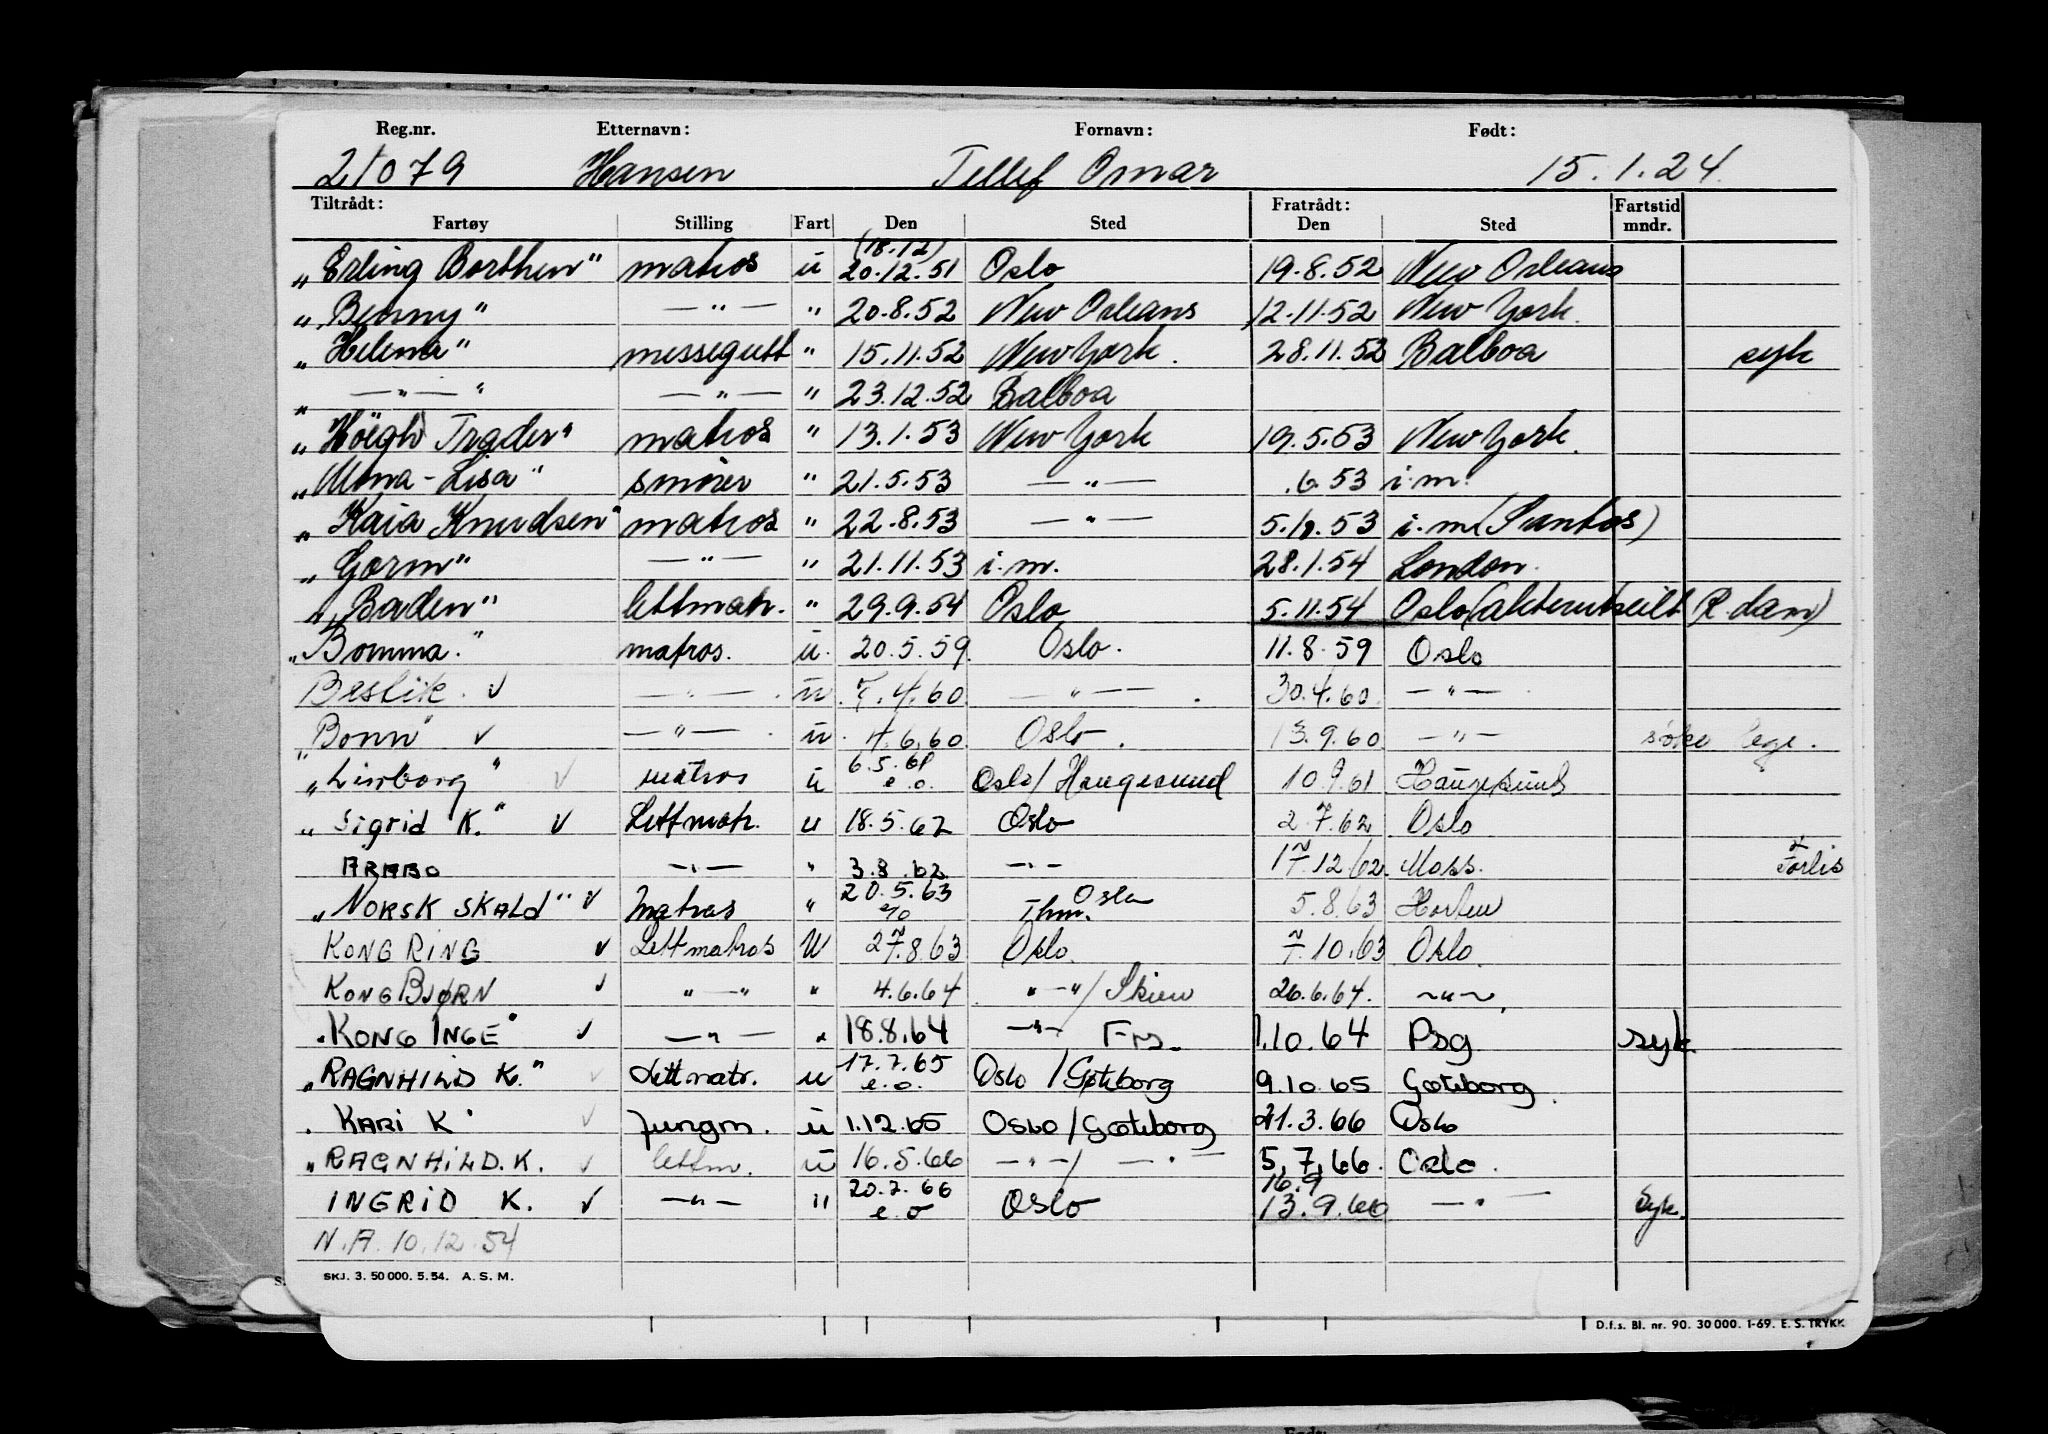 Reg.nr. Etternavn: Fornavn: Født:
21079 Hansen Tellef Omar 15.1.24.
Tiltrådt: Fratrådt: Fartstid
Fartøy Stilling Fart Den Sted Den Sted mndr.
(18.12)
„Erling Borthen" matros u 20.12.51 Oslo 19.8.52 New Orleans
„Benny" —"— " 20.8.52 New Orleans 12.11.52 New York.
„Helena" messegutt " 15.11.52 New York. 28.11.52 Balboa syk
„ —"— " —"— " 23.12.52 Balboa
„Höegh Trader" matros " 13.1.53 New York 19.5.53 New York.
„Mona-Lisa" smører " 21.5.53 —"— .6.53 i.m.
„Kaia Knudsen" matros " 22.8.53 —"— 53 i.m. (Santos)
„Gorm" —"— " 21.11.53 i.m. 28.1.54 London.
„Baden" lettmatr. " 29.9.54 Oslo 5.11.54 Oslo (akterutseilt R.dam)
„Bomma." matros. u. 20.5.59. Oslo. 11.8.59 Oslo
Bestik. ✓ —"—. u. 7.4.60 —"—. 30.4.60. —"—
„Bonn" ✓ —"—. u. 4.6.60 Oslo. 13.9.60 —"— søke lege.
6.5.61
„Linborg" ✓ matros u e.o. Oslo/Haugesund 10.9.61 Haugesund
„Sigrid K." ✓ Lettmatr. u 18.5.62 Oslo 2.7.62 Oslo
ARABO —"— " 3.8.62 —"— 17.12.62. Moss. Forlis
20.5.63 Oslo
„NORSK SKALD" ✓ Matros " e/o Thm. 5.8.63 Horten
KONG RING ✓ Lettmatros U 27.8.63 Oslo. 7.10.63 Oslo.
KONG BJØRN ✓ "—" " 4.6.64 "—"/Skien 26.6.64. —"—
„KONG INGE" ✓ —"— " 18.8.64 —"— Frs. 1.10.64 Psg syk.
17.7.65
„RAGNHILD K." ✓ Lettmatr. u e.o. Oslo/Gøteborg 9.10.65 Gøteborg.
. KARI K" ✓ Jungm. u 1.12.65 Oslo/Gøteborg 21.3.66 Oslo
„RAGNHILD. K. ✓ lettm. u 16.5.66 —"—/—"— 5.7.66. Oslo.
20.7.66 16.9
INGRID K. ✓ —"— " e.o Oslo 13.9.66 —"— Syk.
N.A. 10.12.54
SKJ. 3. 50 000. 5.54. A. S. M.
D.f.s. Bl. nr. 90. 30 000. 1-69. E. S. TRYKK